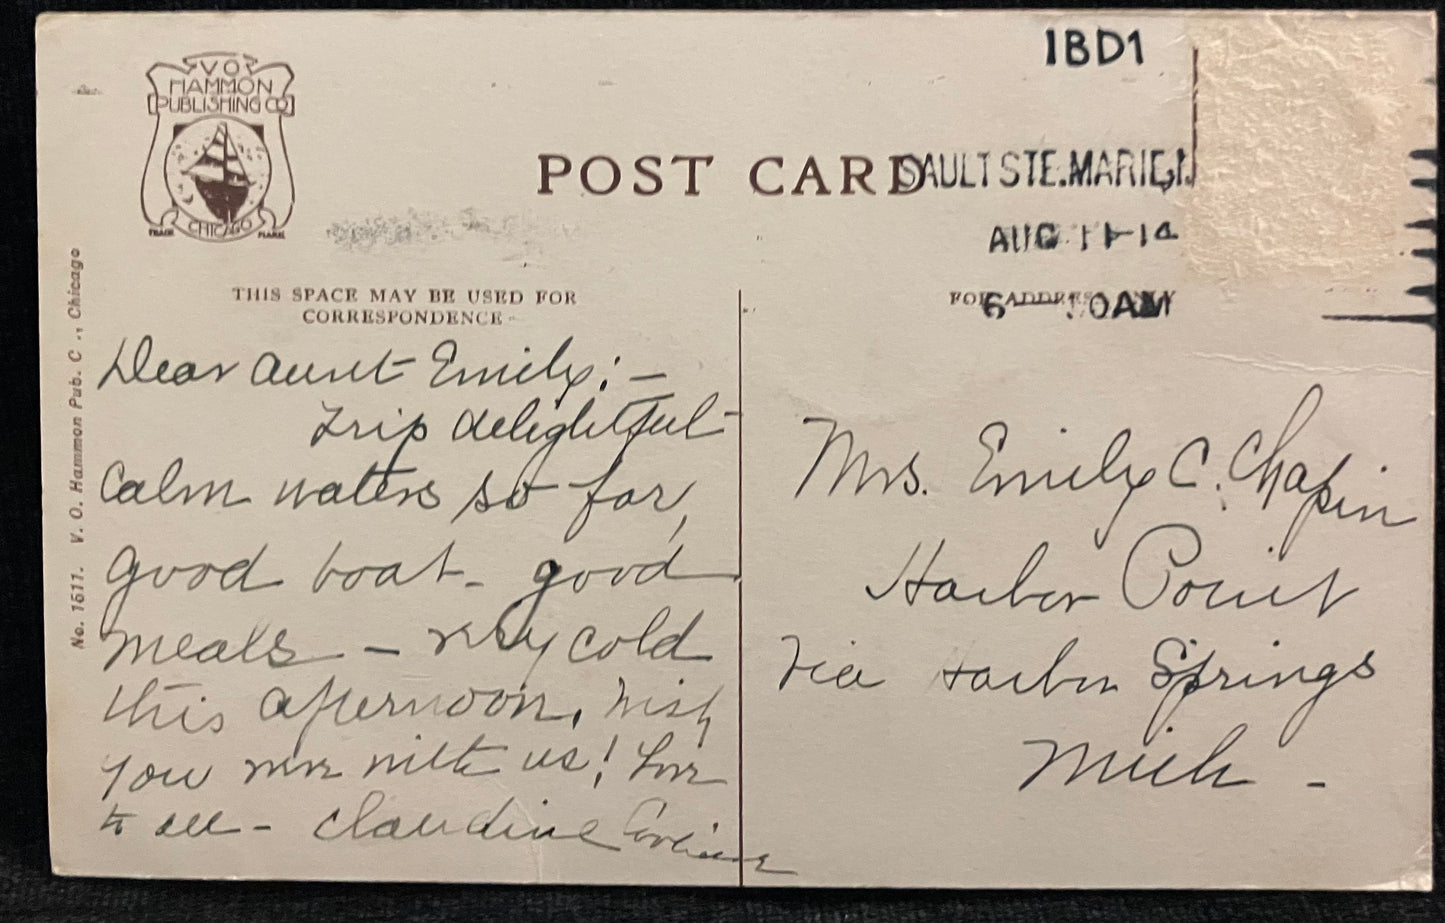 V O
HAMMON
PUBLISHING CO
CHICAGO
TRADE MARK
1BD1
POST CARD
SAULT STE. MARIE,
AUG 11-14
6 - 0AM
THIS SPACE MAY BE USED FOR
CORRESPONDENCE
FOR ADDRESS ONLY
No. 1511. V. O. Hammon Pub. C ., Chicago
Dear Aunt Emily:-
Trip delightful-
Calm waters so far,
good boat- good
meals - very cold
this afternoon. Wish
you were with us! Love
to all - Claudine
Mrs. Emily C. Chapin
Harbor Point
Via Harbor Springs
Mich -